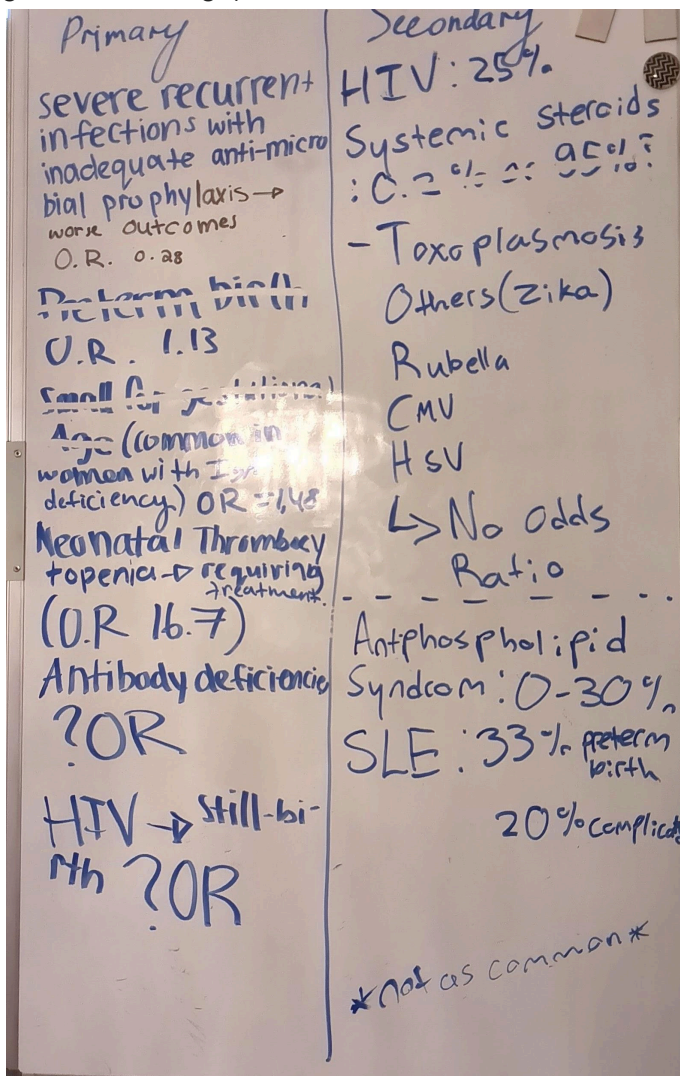 Primary
severe recurrent
infections with
inadequate anti-micro
bial prophylaxis →
worse outcomes
O.R. 0.28
Preterm birth
O.R. 1.13
Small for gestational
Age (common in
women with Iron
deficiency) OR = 1,48
Neonatal Thrombocy
topenia → requiring
treatment.
(O.R 16.7)
Antibody deficiencie
?OR
HIV → Still-bi-
rth ?OR
Secondary
HIV: 25%
Systemic steroids
: 0.2% 95%?
- Toxoplasmosis
Others (Zika)
Rubella
CMV
HSV
↳ No Odds
Ratio
Antphospholipid
Syndrom: 0-30%
SLE: 33% preterm
birth
20% complicat
*not as common*